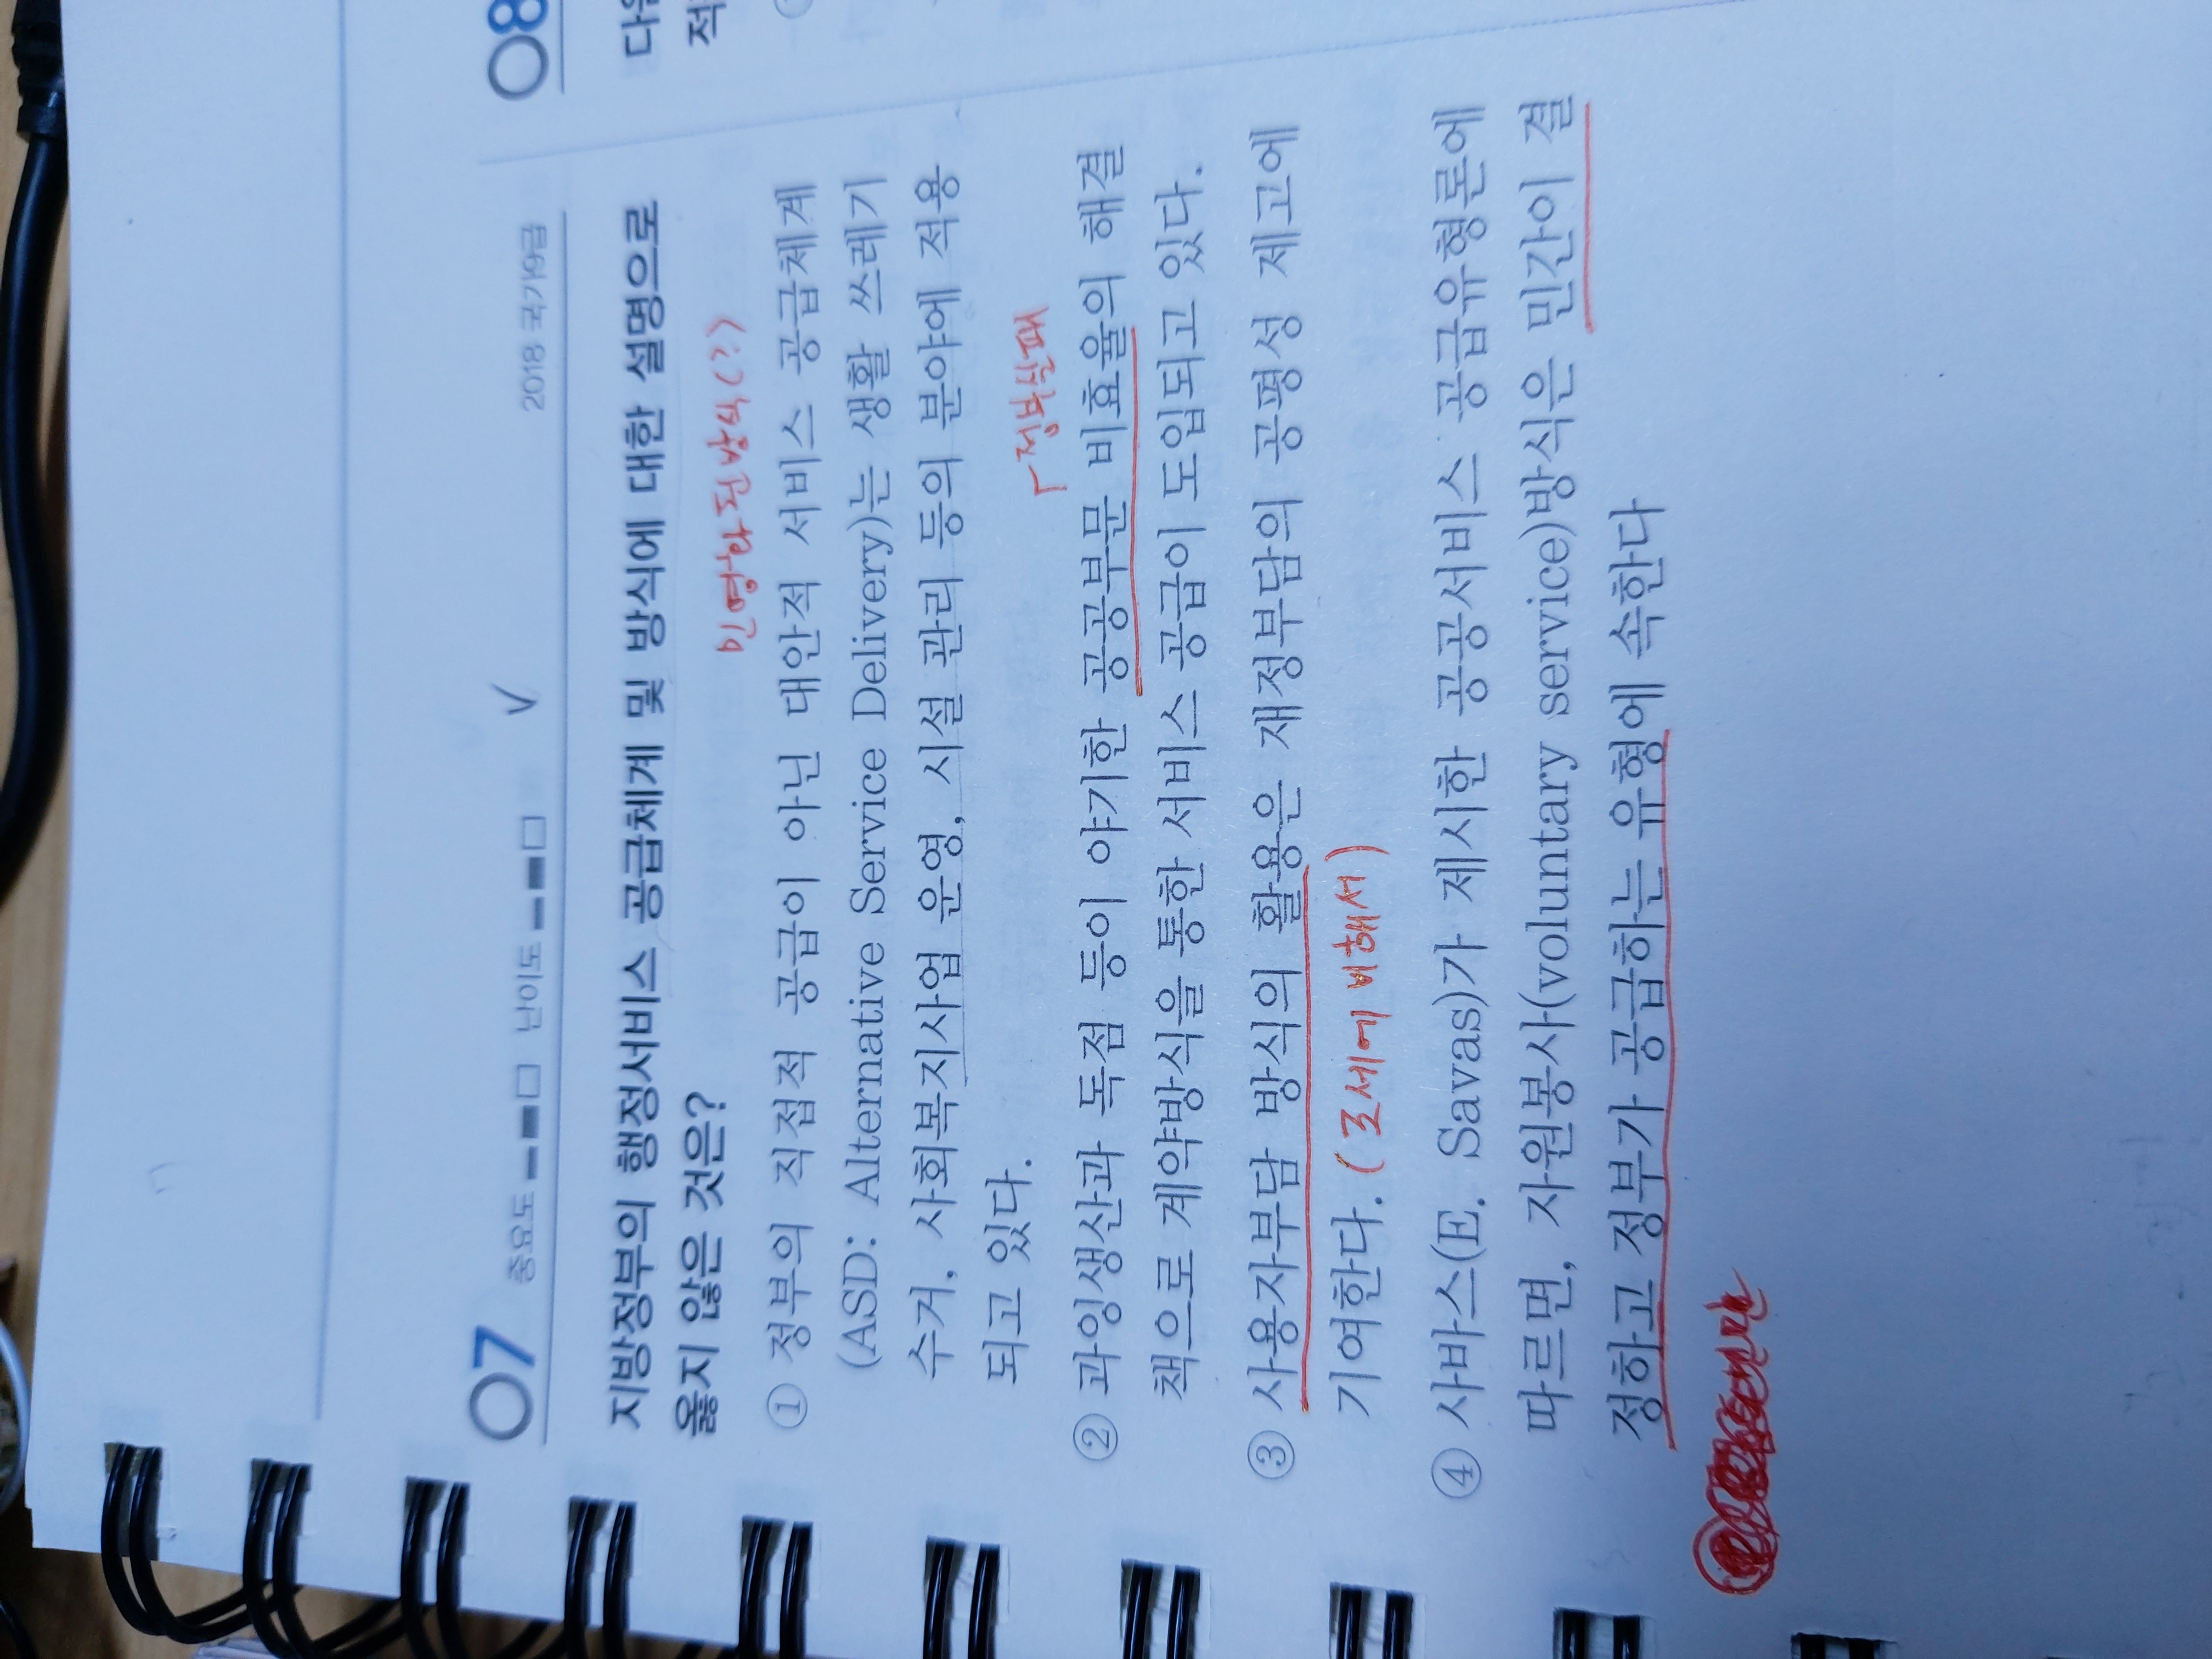 07 중요도 난이도 2018 국가9급
지방정부의 행정서비스 공급체계 및 방식에 대한 설명으로
옳지 않은 것은?
민영화된방식(?)
① 정부의 직접적 공급이 아닌 대안적 서비스 공급체계
(ASD: Alternative Service Delivery)는 생활 쓰레기
수거, 사회복지사업 운영, 시설 관리 등의 분야에 적용
되고 있다.
정부실패
② 과잉생산과 독점 등이 야기한 공공부문 비효율의 해결
책으로 계약방식을 통한 서비스 공급이 도입되고 있다.
③ 사용자부담 방식의 활용은 재정부담의 공평성 제고에
기여한다. (조세에 비해서)
④ 사바스(E. Savas)가 제시한 공공서비스 공급유형론에
따르면, 자원봉사(voluntary service)방식은 민간이 결
정하고 정부가 공급하는 유형에 속한다
08